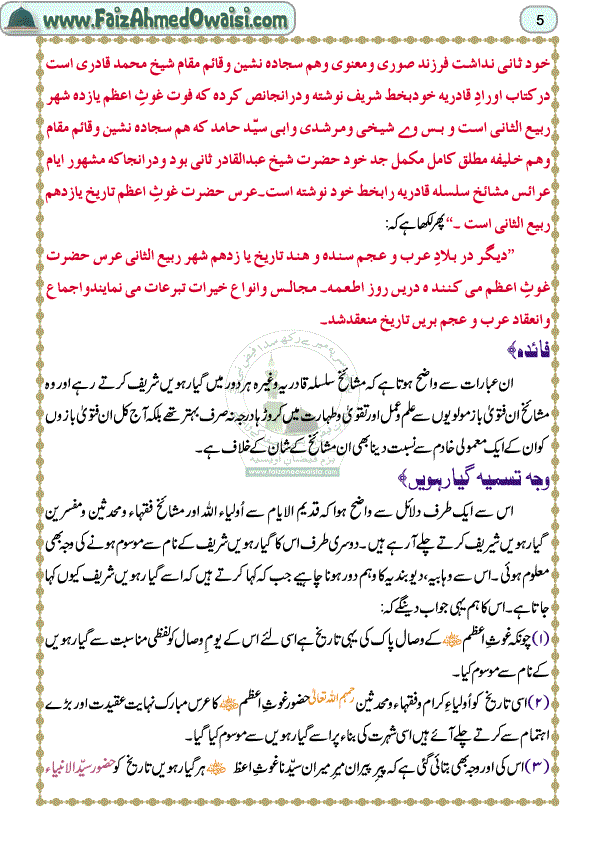 www.FaizAhmedOwaisi.com
5
خود ثانی نداشت فرزند صوری ومعنوی وهم سجاده نشین وقائم مقام شیخ محمد قادری است
درکتاب اورادِ قادریه خودبخط شریف نوشته ودرانجانص کرده که فوت غوثِ اعظم یازده شهر
ربیع الثانی است و بس وے شیخی ومرشدی وابی سیّد حامد که هم سجاده نشین وقائم مقام
وهم خلیفه مطلق کامل مکمل جد خود حضرت شیخ عبدالقادر ثانی بود ودرانجاکه مشهور ایام
عرائس مشائخ سلسله قادریه رابخط خود نوشته است۔عرس حضرت غوثِ اعظم تاریخ یازدهم
ربیع الثانی است ۔“ پھر لکھا ہے کہ:
”دیگر در بلادِ عرب و عجم سنده و هند تاریخ یا زدهم شهر ربیع الثانی عرس حضرت
غوثِ اعظم می کنند ه دریں روز اطعمه۔ مجالس وانوا ع خیرات تبرعات می نمایندواجماع
وانعقاد عرب و عجم بریں تاریخ منعقدشد۔
فائدہ﴾
ان عبارات سے واضح ہوتا ہے کہ مشائخ سلسلہ قادریہ وغیرہ ہر دور میں گیارہویں شریف کرتے رہے اور وہ
مشائخ ان فتویٰ باز مولویوں سے علم وعمل اور تقویٰ وطہارت میں کروڑہا درجہ نہ صرف بہتر تھے بلکہ آج کل ان فتویٰ بازوں
کو ان کے ایک معمولی خادم سے نسبت دینا بھی ان مشائخ کے شان کے خلاف ہے۔
www.faizaneowaisia.com
وجہ تسمیہ گیارہویں﴾
اس سے ایک طرف دلائل سے واضح ہوا کہ قدیم الایام سے اُولیاء اللہ اور مشائخ فقہاء ومحدثین ومفسرین
گیارہویں شریف کرتے چلے آرہے ہیں۔ دوسری طرف اس کا گیارہویں شریف کے نام سے موسوم ہونے کی وجہ بھی
معلوم ہوئی۔اس سے وہابیہ، دیوبندیہ کا وہم دور ہونا چاہیے جب کہ کہا کرتے ہیں کہ اسے گیارہویں شریف کیوں کہا
جاتا ہے۔اس کا ہم یہی جواب دینگے کہ:
(۱) چونکہ غوثِ اعظم ﷺ کے وصال پاک کی یہی تاریخ ہے اسی لئے اس کے یومِ وصال کو لفظی مناسبت سے گیارہویں
کے نام سے موسوم کیا۔
(۲) اسی تاریخ کو اُولیاءِ کرام وفقہاء ومحدثین رحمہم اللہ تعالیٰ حضور غوثِ اعظم کا عرس مبارک نہایت عقیدت اور بڑے
اہتمام سے کرتے چلے آئے ہیں اسی شہرت کی بناء پر اسے گیارہویں سے موسوم کیا گیا۔
(۳) اس کی اور وجہ بھی بتائی گئی ہے کہ پیرِ پیران میرِ میران سیّدنا غوثِ اعظ ہر گیارہویں تاریخ کو حضور سیّد الانبیاء